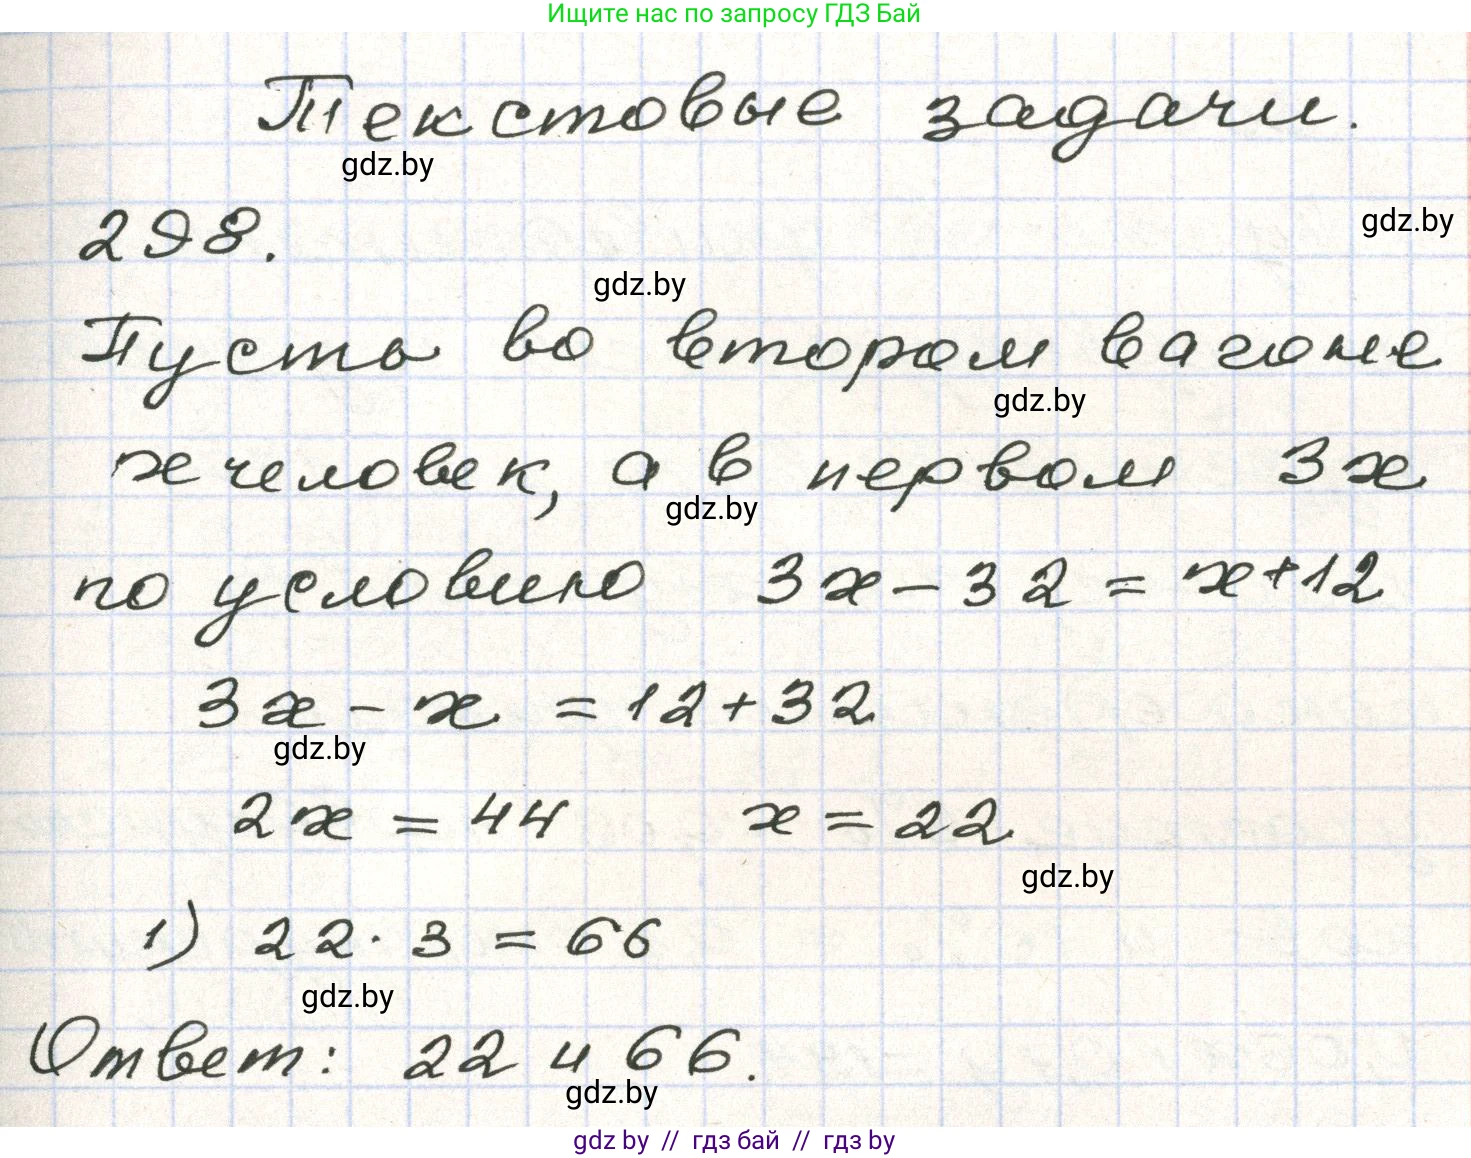 Ищите нас по запросу ГДЗ Бай
Текстовые задачи.
gdz.by
298.
gdz.by
gdz.by
Пусть во втором вагоне
gdz.by
x человек, а в первом 3x
gdz.by
по условию 3x - 32 = x + 12
3x - x = 12 + 32
gdz.by
2x = 44 x = 22
gdz.by
1) 22 · 3 = 66
gdz.by
Ответ: 22 и 66.
gdz.by
gdz by // гдз бай // гдз by